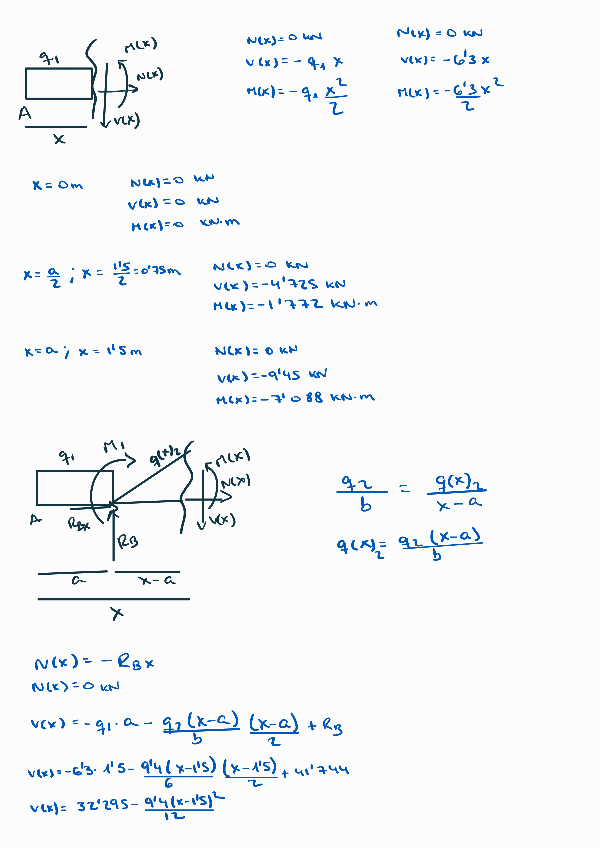 q₁
M(x)
N(x)
V(x)
A
x
N(x)=0 kN
V(x)=-q₁ x
M(x)=-q₁ x²/2
N(x)=0 kN
V(x)=-6'3x
M(x)=-6'3x²/2
x=0m
N(x)=0 kN
V(x)=0 kN
M(x)=0 kN·m
x=a/2 ; x=1'5/2=0'75m
N(x)=0 kN
V(x)=-4'725 kN
M(x)=-1'772 kN·m
x=a ; x=1'5m
N(x)=0 kN
V(x)=-9'45 kN
M(x)=-7'088 kN·m
q₁
M₁
q(x)₂
M(x)
N(x)
V(x)
A
RBx
RB
a
x-a
x
q₂/b = q(x)₂/(x-a)
q(x)₂= q₂(x-a)/b
N(x)=-RBx
N(x)=0 kN
V(x)=-q₁·a - q₂(x-a)/b (x-a)/2 + RB
V(x)=-6'3·1'5- 9'4(x-1'5)/6 (x-1'5)/2 +41'744
V(x)= 32'295- 9'4(x-1'5)²/12